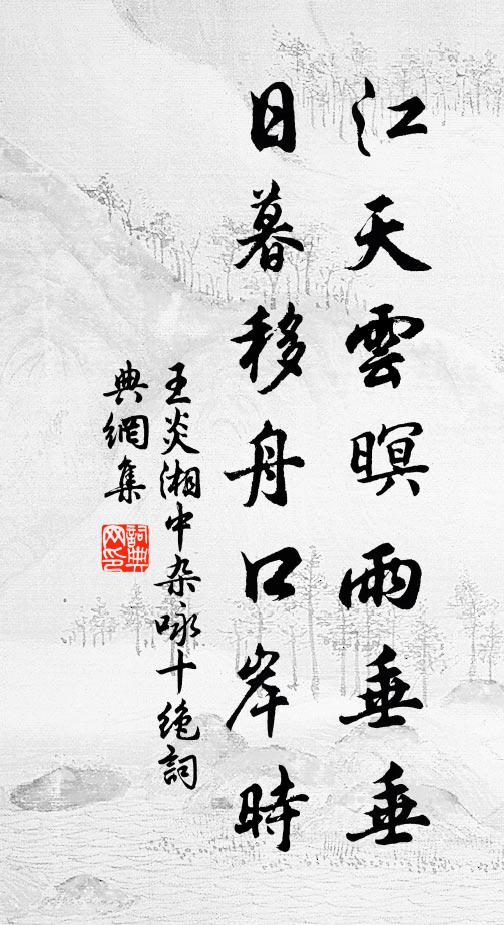 江天雲暝雨垂垂
日暮移舟口岸時
王炎湘中杂咏十绝詞
典網集
詞典
网印